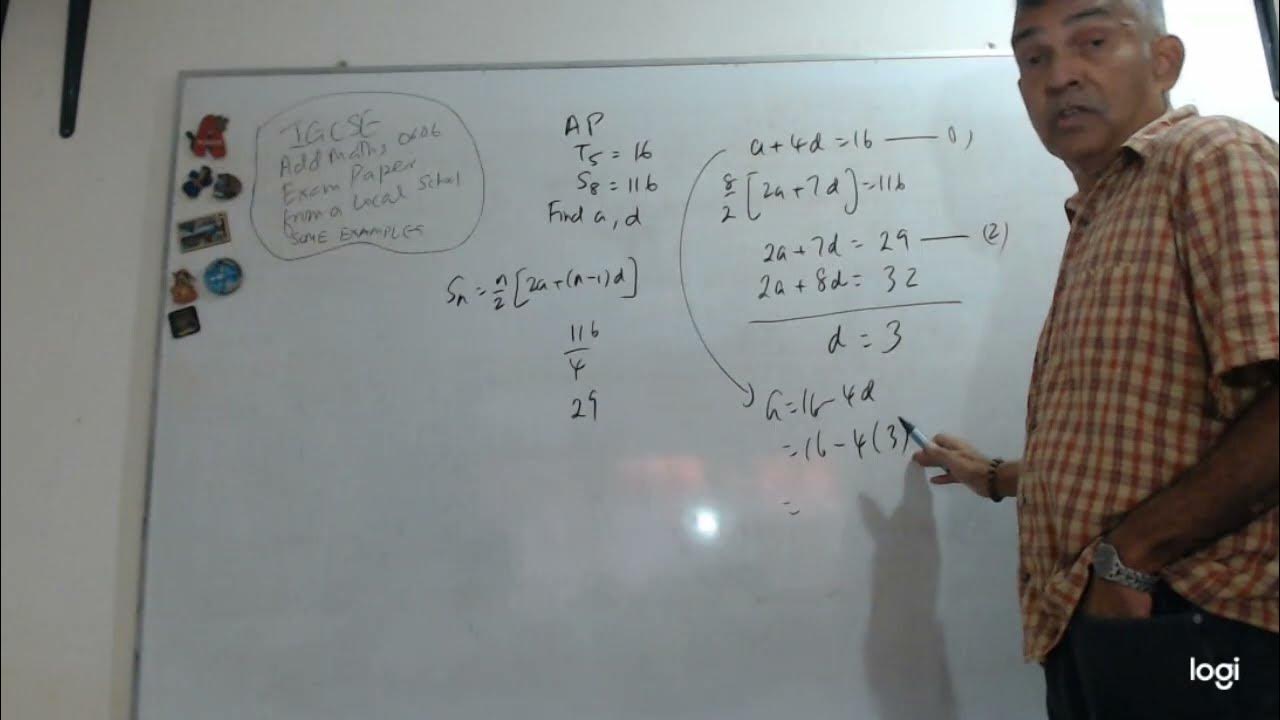 IGCSE
Add Maths 0606
Exam Paper
from a Local School
SOME EXAMPLES
AP
T₅ = 16
S₈ = 116
Find a, d
Sₙ = n/2 [2a + (n-1)d]
116
4
29
a + 4d = 16 —— 1)
8/2 [2a + 7d] = 116
2a + 7d = 29 —— (2)
2a + 8d = 32
d = 3
a = 16 - 4d
= 16 - 4(3)
=
logi